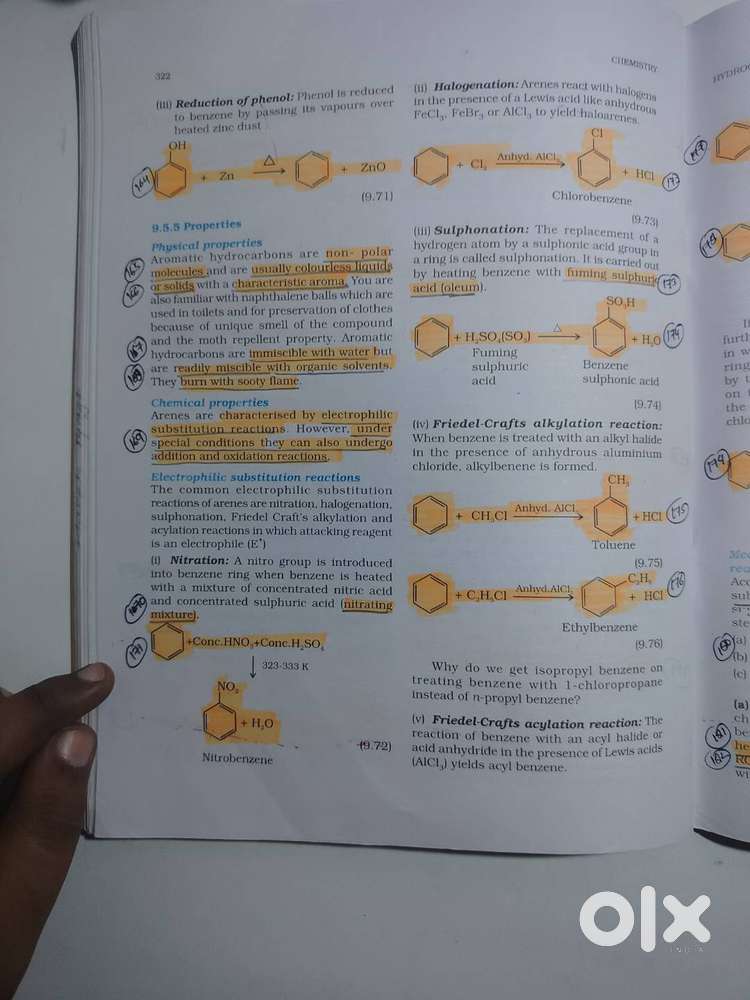 322
CHEMISTRY
(iii) Reduction of phenol: Phenol is reduced
to benzene by passing its vapours over
heated zinc dust
OH
164
+ Zn
Δ
+ ZnO
(9.71)
9.5.5 Properties
Physical properties
Aromatic hydrocarbons are non- polar
molecules and are usually colourless liquids
or solids with a characteristic aroma. You are
also familiar with naphthalene balls which are
used in toilets and for preservation of clothes
because of unique smell of the compound
and the moth repellent property. Aromatic
hydrocarbons are immiscible with water but
are readily miscible with organic solvents.
They burn with sooty flame.
165
166
167
168
Chemical properties
Arenes are characterised by electrophilic
substitution reactions. However, under
special conditions they can also undergo
addition and oxidation reactions.
169
Electrophilic substitution reactions
The common electrophilic substitution
reactions of arenes are nitration, halogenation,
sulphonation, Friedel Craft's alkylation and
acylation reactions in which attacking reagent
is an electrophile (E⁺)
(i) Nitration: A nitro group is introduced
into benzene ring when benzene is heated
with a mixture of concentrated nitric acid
and concentrated sulphuric acid (nitrating
mixture).
170
171
+Conc.HNO₃+Conc.H₂SO₄
323-333 K
NO₂
+ H₂O
(9.72)
Nitrobenzene
(ii) Halogenation: Arenes react with halogens
in the presence of a Lewis acid like anhydrous
FeCl₃, FeBr₃ or AlCl₃ to yield haloarenes.
Cl
+ Cl₂
Anhyd. AlCl₃
+ HCl
Chlorobenzene
(9.73)
(iii) Sulphonation: The replacement of a
hydrogen atom by a sulphonic acid group in
a ring is called sulphonation. It is carried out
by heating benzene with fuming sulphuric
acid (oleum).
173
SO₃H
+ H₂SO₄(SO₃)
Δ
+ H₂O
174
Fuming
sulphuric
acid
Benzene
sulphonic acid
(9.74)
(iv) Friedel-Crafts alkylation reaction:
When benzene is treated with an alkyl halide
in the presence of anhydrous aluminium
chloride, alkylbenene is formed.
CH₃
+ CH₃Cl
Anhyd. AlCl₃
+HCl
175
Toluene
(9.75)
C₂H₅
+ C₂H₅Cl
Anhyd.AlCl₃
+ HCl
176
Ethylbenzene
(9.76)
Why do we get isopropyl benzene on
treating benzene with 1-chloropropane
instead of n-propyl benzene?
(v) Friedel-Crafts acylation reaction: The
reaction of benzene with an acyl halide or
acid anhydride in the presence of Lewis acids
(AlCl₃) yields acyl benzene.
olx
INDIA